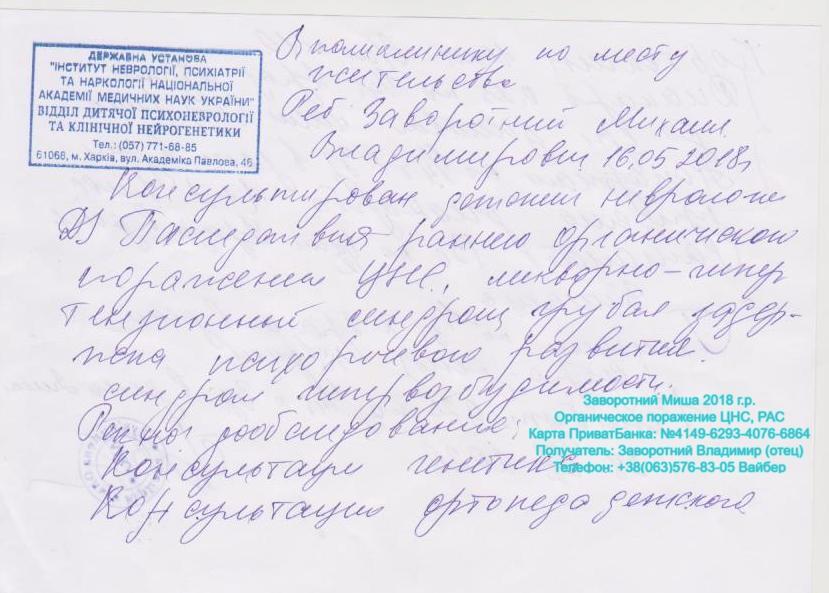 ДЕРЖАВНА УСТАНОВА
"ІНСТИТУТ НЕВРОЛОГІЇ, ПСИХІАТРІЇ
ТА НАРКОЛОГІЇ НАЦІОНАЛЬНОЇ
АКАДЕМІЇ МЕДИЧНИХ НАУК УКРАЇНИ"
ВІДДІЛ ДИТЯЧОЇ ПСИХОНЕВРОЛОГІЇ
ТА КЛІНІЧНОЇ НЕЙРОГЕНЕТИКИ
Тел.: (057) 771-68-85
61068, м. Харків, вул. Академіка Павлова, 46
В поликлинику по месту
жительства
Реб. Заворотний Михаил
Владимирович 16.05.2018г
Консультирован детским неврологом
DS Последствия раннего органического
поражения ЦНС, ликворно-гипер
тензионный синдром, грубая задер-
жка психоречевого развития.
синдром гипервозбудимости.
Рек-но дообследование:
Консультация генетика
Консультация ортопеда детского
Заворотний Миша 2018 г.р.
Органическое поражение ЦНС, РАС
Карта ПриватБанка: №4149-6293-4076-6864
Получатель: Заворотний Владимир (отец)
Телефон: +38(063)576-83-05 Вайбер